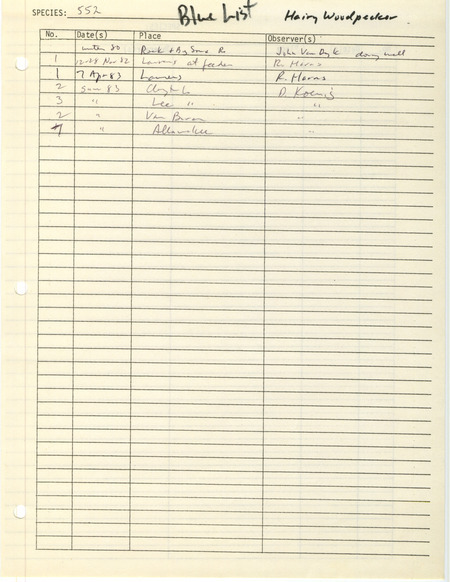 SPECIES: 552 Blue List Hairy Woodpecker
No. Date(s) Place Observer(s)
winter 80 Rock + Big Sioux R John Van Dyk doing well
1 12-28 Nov 82 Laurens at feeder R. Harms
1 7 Apr 83 Laurens R. Harms
2 Sum 83 Clayton Co D. Koenig
3 " Lee " "
2 " Van Buren "
7 " Allamakee "